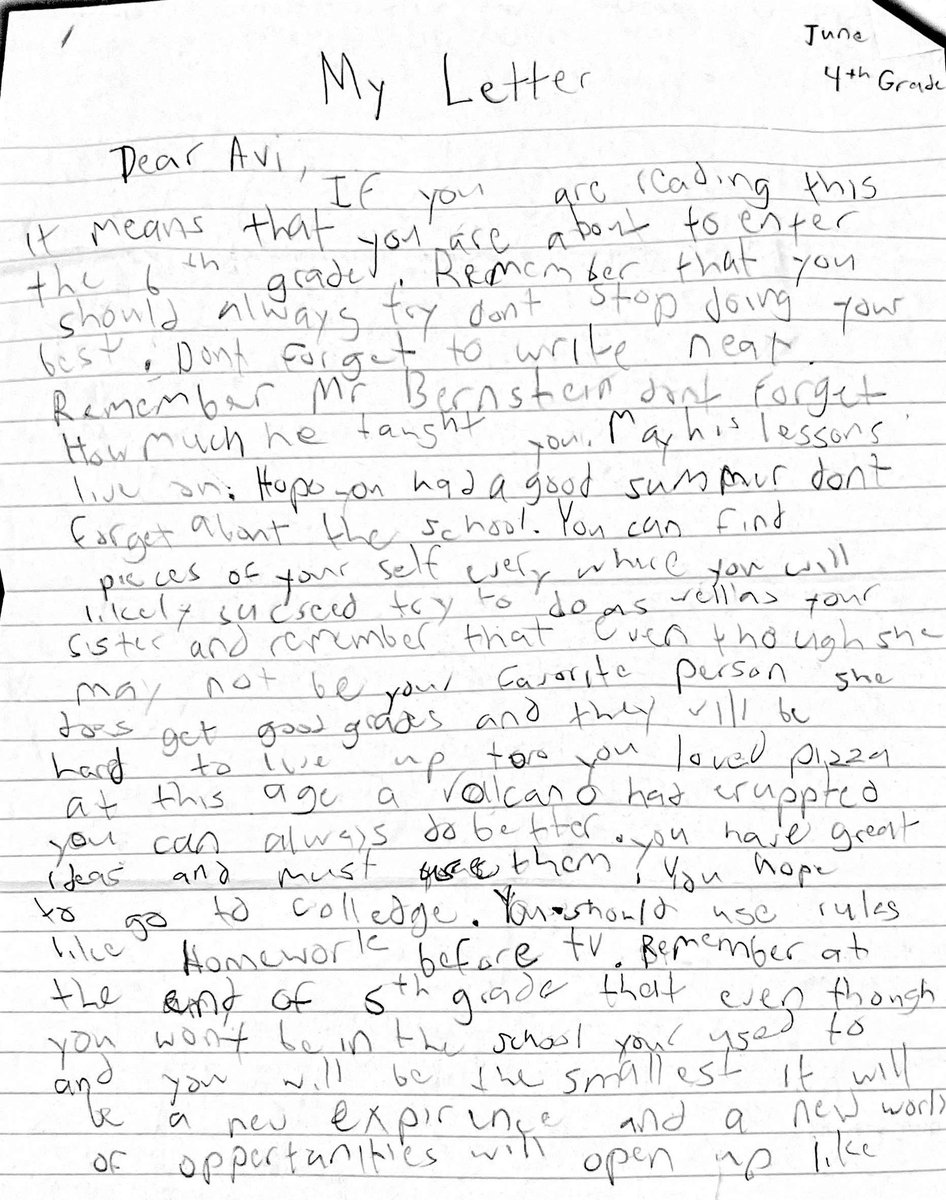 June
4th Grade
My Letter
Dear Avi,
If you are reading this
it means that you are about to enter
the 6th grade. Remember that you
should always try dont stop doing your
best. Dont forget to write neat.
Remember Mr Bernstein dont forget
How much he taught you. May his lessons
live on. Hope you had a good summur dont
forget about the school. You can find
pieces of your self every where you will
likely sucseed try to do as well as your
sister and remember that even though she
may not be your favorite person she
does get good grades and they will be
hard to live up too you loved pizza
at this age a volcano had eruppted
you can always do better. you have great
ideas and must use them! You hope
to go to colledge. You should use rules
like Homework before tv. Remember at
the end of 5th grade that even though
you won't be in the school your used to
and you will be the smallest it will
be a new expirence and a new world
of opportunities will open up like